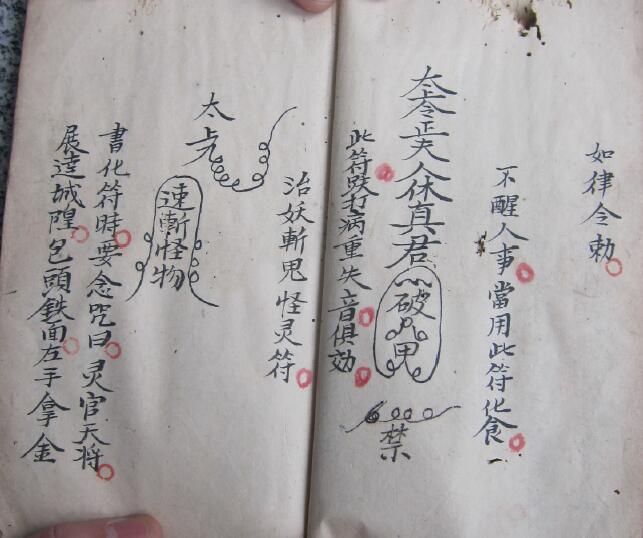 如律令勅
不醒人事當用此符化食一
太夫人休真君
破鬼
禁
此符跌打病重失音俱効
治妖斬鬼怪灵符
太
速斬怪物
書化符時要念咒曰灵官天将
展逹城隍包頭鉄面左手拿金